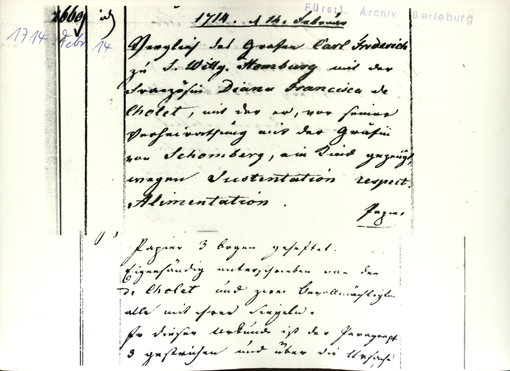 Fürstl. Archiv Berleburg
1714. d 14. Februar
1714 Febr 14
Vergleich des Grafen Carl Friderich
zu S. Wittg. Homburg mit der
Französin Diana Francisca de
Cholet, mit der er, vor seiner
Verheirathung mit der Gräfin
von Schomberg, ein Kind gezeugt,
wegen Sustentation respect.
Alimentation.
Papier
Papier 3 bogen geheftet.
Eigenhändig unterschrieben von der
de Cholet und zwei Bevollmächtigten
alle mit ihren Siegeln.
In dieser Urkunde ist der Paragraph
3 gestrichen und über die Ursache